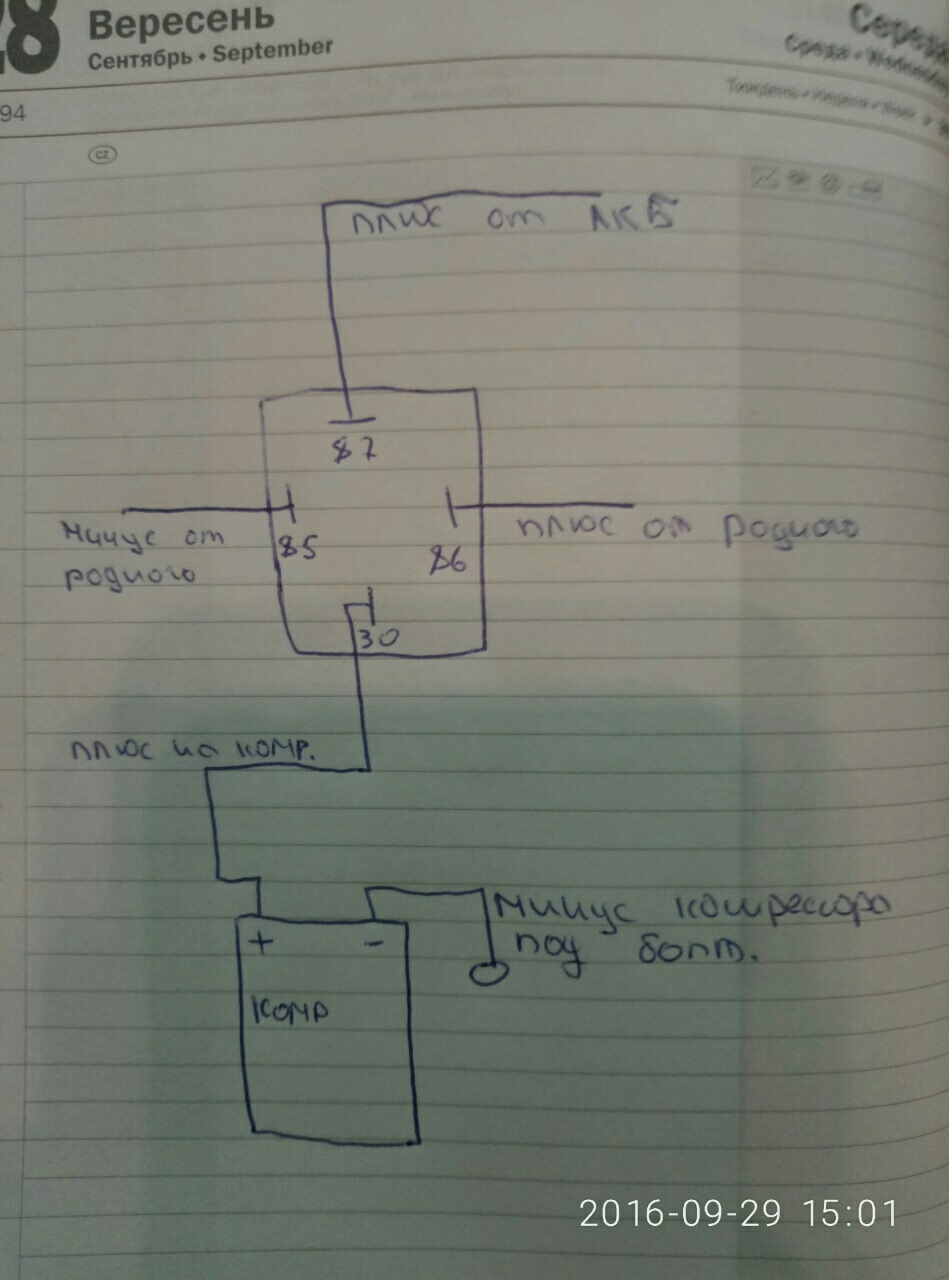 28 Вересень
Сентябрь • September
94
CZ
плюс от АКБ
87
Минус от
родного
85
86
плюс от родного
30
плюс на комр.
+ -
комр
Минус компрессора
под болт.
2016-09-29 15:01